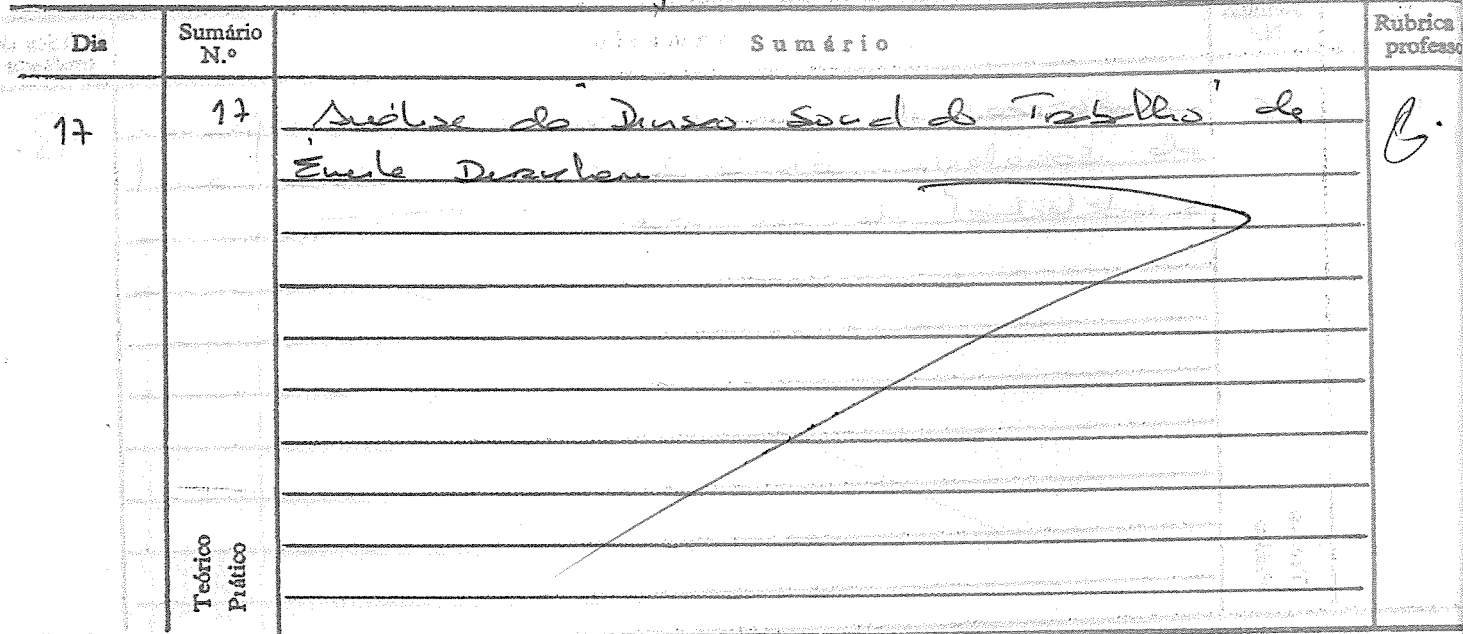 Dia
Sumário
N.º
Sumário
Rubrica
professo
17
17
Análise da "Divisão Social do Trabalho" de
Émile Durkheim
Teórico
Prático